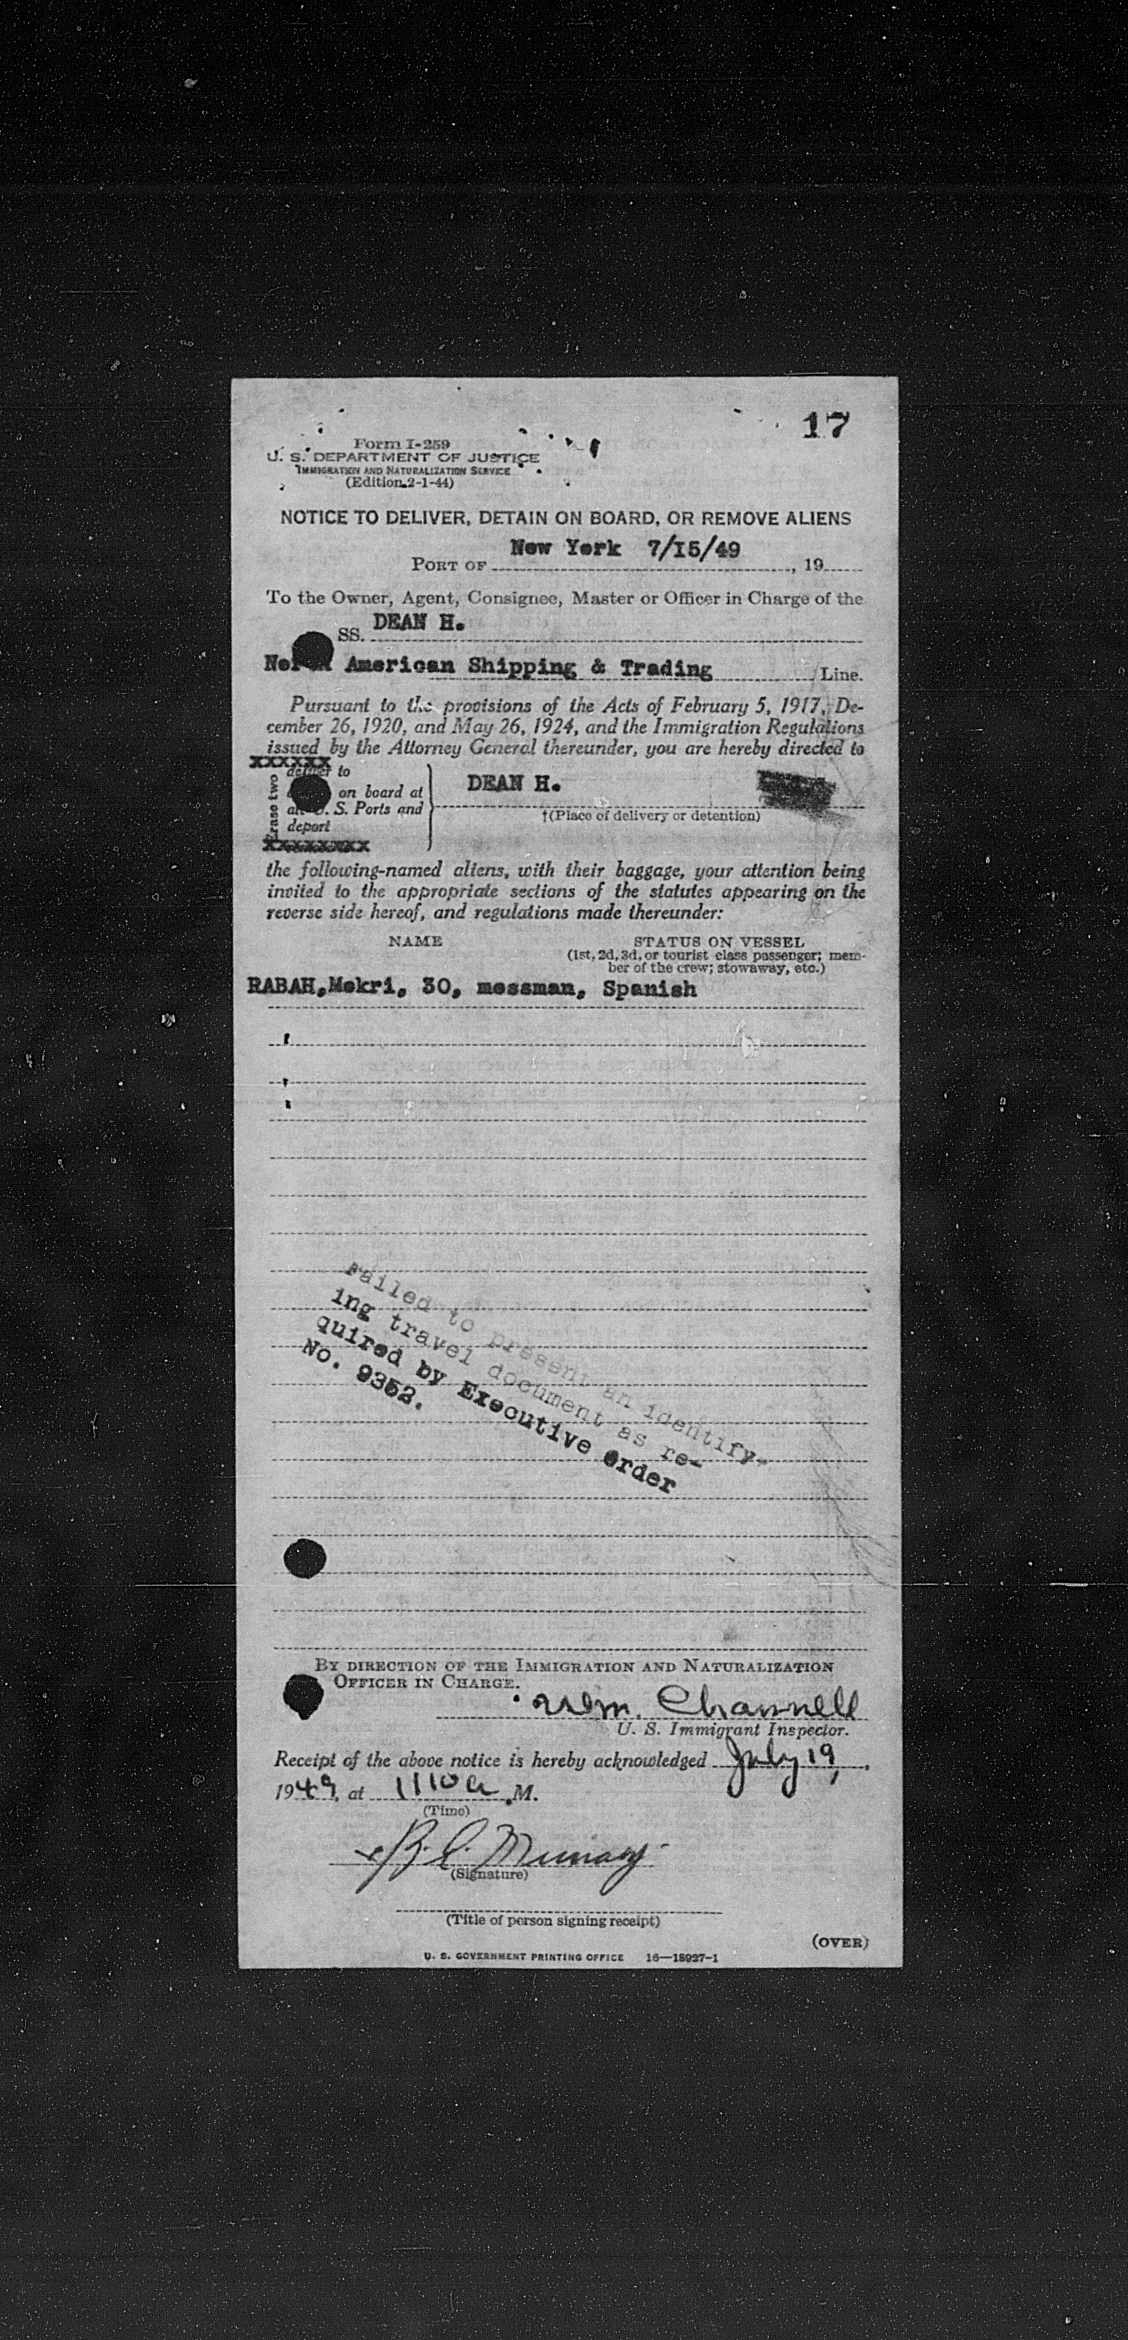 17
Form I-259
U. S. DEPARTMENT OF JUSTICE
IMMIGRATION AND NATURALIZATION SERVICE
(Edition 2-1-44)
NOTICE TO DELIVER, DETAIN ON BOARD, OR REMOVE ALIENS
New York 7/15/49
PORT OF , 19
To the Owner, Agent, Consignee, Master or Officer in Charge of the
DEAN H.
SS.
American Shipping & Trading Line.
Pursuant to the provisions of the Acts of February 5, 1917, De-
cember 26, 1920, and May 26, 1924, and the Immigration Regulations
issued by the Attorney General thereunder, you are hereby directed to
XXXXXX
deliver to
on board at DEAN H.
S. Ports and
†(Place of delivery or detention)
deport
XXXXXXXX
the following-named aliens, with their baggage, your attention being
invited to the appropriate sections of the statutes appearing on the
reverse side hereof, and regulations made thereunder:
NAME STATUS ON VESSEL
(1st, 2d, 3d, or tourist class passenger; mem-
ber of the crew; stowaway, etc.)
RABAH, Mekri, 30, messman, Spanish
Failed to present an identify-
ing travel document as re-
quired by Executive Order
No. 9352.
BY DIRECTION OF THE IMMIGRATION AND NATURALIZATION
OFFICER IN CHARGE.
Wm. Channell
U. S. Immigrant Inspector.
Receipt of the above notice is hereby acknowledged July 19,
1949, at 1110 a .M.
(Time)
Murray
(Signature)
(Title of person signing receipt)
(OVER)
U. S. GOVERNMENT PRINTING OFFICE 16—18927-1